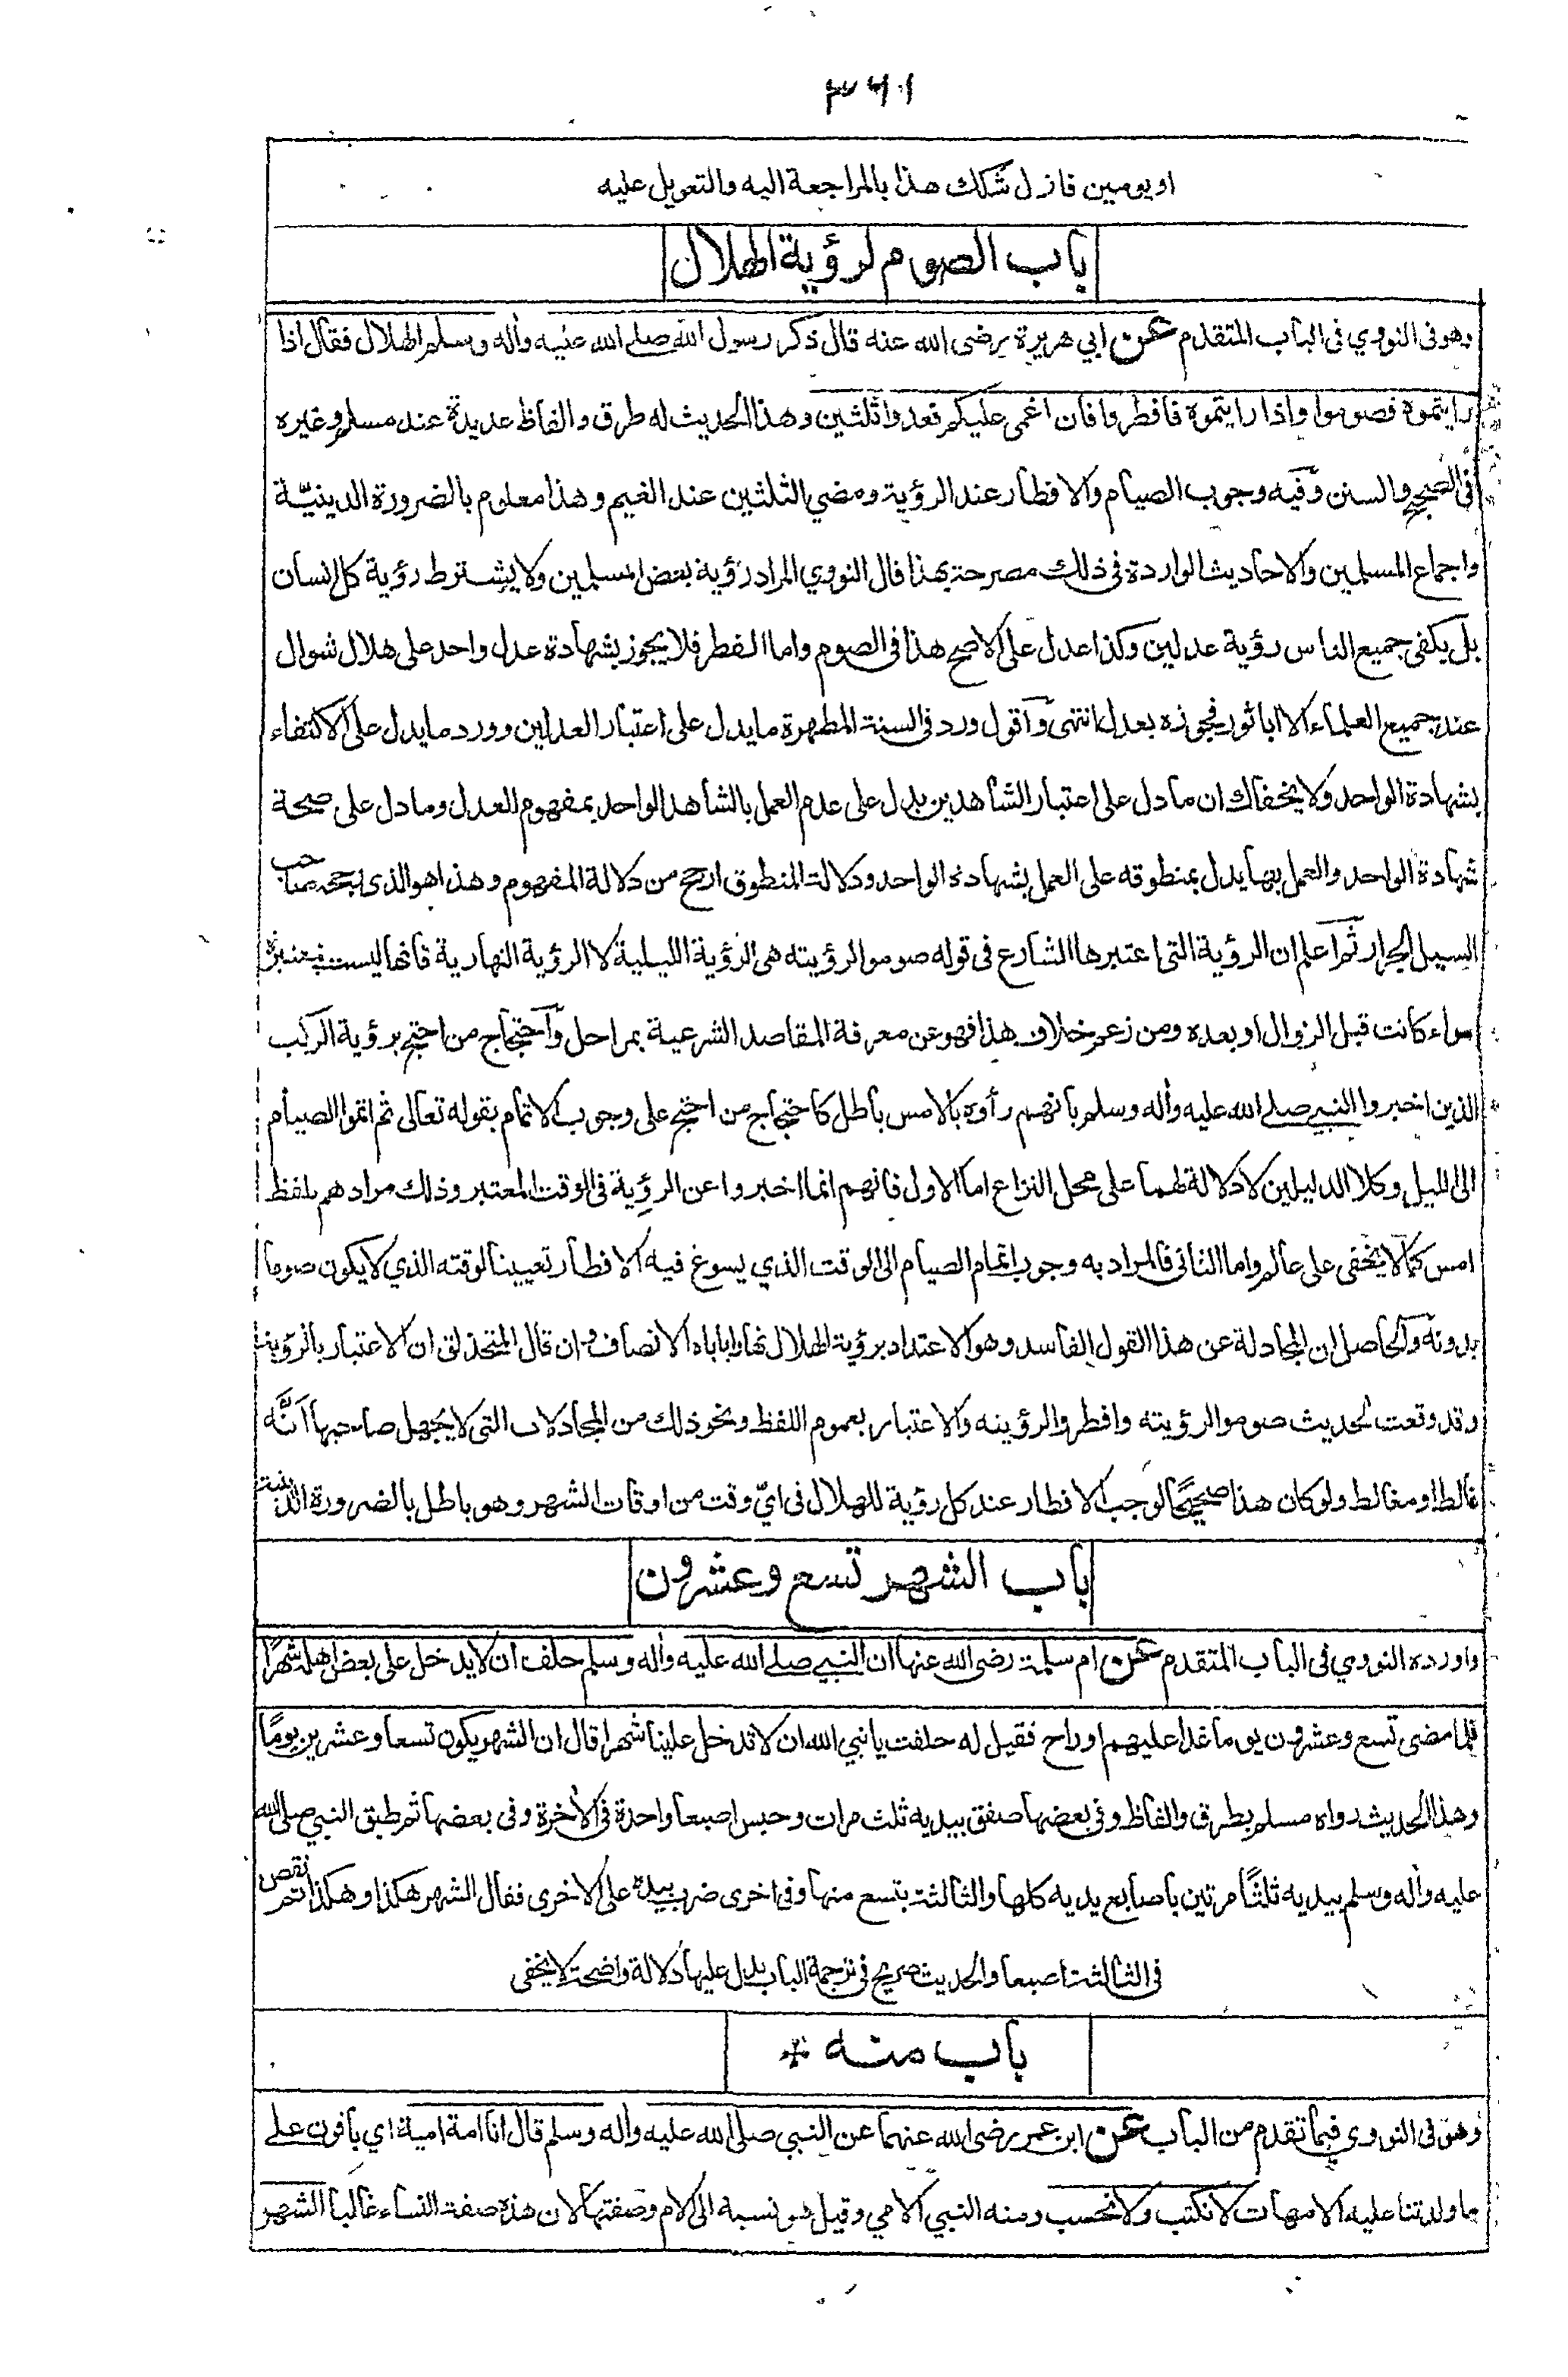 ٣٦١
او يومين فازل شكك هذا بالمراجعة اليه والتعويل عليه
باب الصوم لرؤية الهلال
وهو فى النووي فى الباب المتقدم عن ابي هريرة رضى الله عنه قال ذكر رسول الله صلى الله عليه وأله وسلم الهلال فقال اذا
رايتموه فصوموا واذا رايتموه فافطروا فان اغمى عليكم فعدوا ثلثين وهذا الحديث له طرق والفاظ عديدة عند مسلم وغيره
فى الصحيح والسنن وفيه وجوب الصيام والافطار عند الرؤية ومضي الثلثين عند الغيم وهذا معلوم بالضرورة الدينيّة
واجماع المسلمين والاحاديث الواردة فى ذلك مصرحة بهذا قال النووي المراد رؤية بعض المسلمين ولا يشترط رؤية كل انسان
بل يكفى جميع الناس رؤية عدلين وكذا عدل على الاصح هذا فى الصوم واما الفطر فلا يجوز بشهادة عدل واحد على هلال شوال
عند جميع العلماء الا ابا ثور فجوزه بعدل انتهى وأقول ورد فى السنة المطهرة ما يدل على اعتبار العدلين وورد ما يدل على الاكتفاء
بشهادة الواحد ولا يخفاك ان ما دل على اعتبار الشاهدين يدل على عدم العمل بالشاهد الواحد بمفهوم العدل وما دل على صحة
شهادة الواحد والعمل بها يدل بمنطوقه على العمل بشهادة الواحد ودلالة المنطوق ارجح من دلالة المفهوم وهذا هو الذى رجحه صاحب
السيل الجرار ثم اعلم ان الرؤية التى اعتبرها الشارع فى قوله صوموا لرؤيته هى الرؤية الليلية لا الرؤية النهارية فانها ليست بمعتبرة
سواء كانت قبل الزوال او بعده ومن زعم خلاف هذا فهو عن معرفة المقاصد الشرعية بمراحل وآحتجاج من احتج برؤية الركب
الذين اخبروا النبي صلى الله عليه وأله وسلم بانهم رأوه بالامس باطل كاحتجاج من احتج على وجوب الاتمام بقوله تعالى ثم اتموا الصيام
الى الليل وكلا الدليلين لا دلالة لهما على محل النزاع اما الاول فانهم انما اخبروا عن الرؤية فى الوقت المعتبر وذلك مرادهم بلفظ
امس كما لا يخفى على عالم واما الثانى فالمراد به وجوب اتمام الصيام الى الوقت الذي يسوغ فيه الافطار تعيينا لوقته الذي لا يكون صوما
بدونه وآلحاصل ان المجادلة عن هذا القول الفاسد وهو الاعتداد برؤية الهلال نهارا يأباه الانصاف وان قال المتحذلق ان الاعتبار بالرؤية
وقد وقعت لحديث صوموا لرؤيته وافطروا لرؤيته والاعتبار بعموم اللفظ ونحو ذلك من المجادلات التى لا يجهل صاحبها أنّه
غالط او مغالط ولو كان هذا صحيحًا لوجب الافطار عند كل رؤية للهلال فى ايّ وقت من اوقات الشهر وهو باطل بالضرورة الدينية
باب الشهر تسع وعشرون
واورده النووي فى الباب المتقدم عن ام سلمة رضى الله عنها ان النبي صلى الله عليه وأله وسلم حلف ان لا يدخل على بعض اهله شهرًا
فلما مضى تسع وعشرون يوما غدا عليهم او راح فقيل له حلفت يا نبي الله ان لا تدخل علينا شهرا قال ان الشهر يكون تسعا وعشرين يومًا
وهذا الحديث رواه مسلم بطرق والفاظ وفى بعضها صفق بيديه ثلث مرات وحبس اصبعا واحدة فى الأخرة وفى بعضها ثم طبق النبي صلى الله
عليه وأله وسلم بيديه ثلثًا مرتين باصابع يديه كلها والثالثة بتسع منها وفى اخرى ضرب بيده على الاخرى فقال الشهر هكذا وهكذا ثم نقص
فى الثالثة اصبعا والحديث صريح فى ترجمة الباب يدل عليها دلالة واضحة لا يخفى
باب منه *
وهو فى النووي فيما تقدم من الباب عن ابن عمر رضى الله عنهما عن النبي صلى الله عليه وأله وسلم قال انا امة امية اي باقون على
ما ولدتنا عليه الامهات لا نكتب ولا نحسب ومنه النبي الامي وقيل هو نسبة الى الام وصفتها لان هذه صفة النساء غالبا الشهر